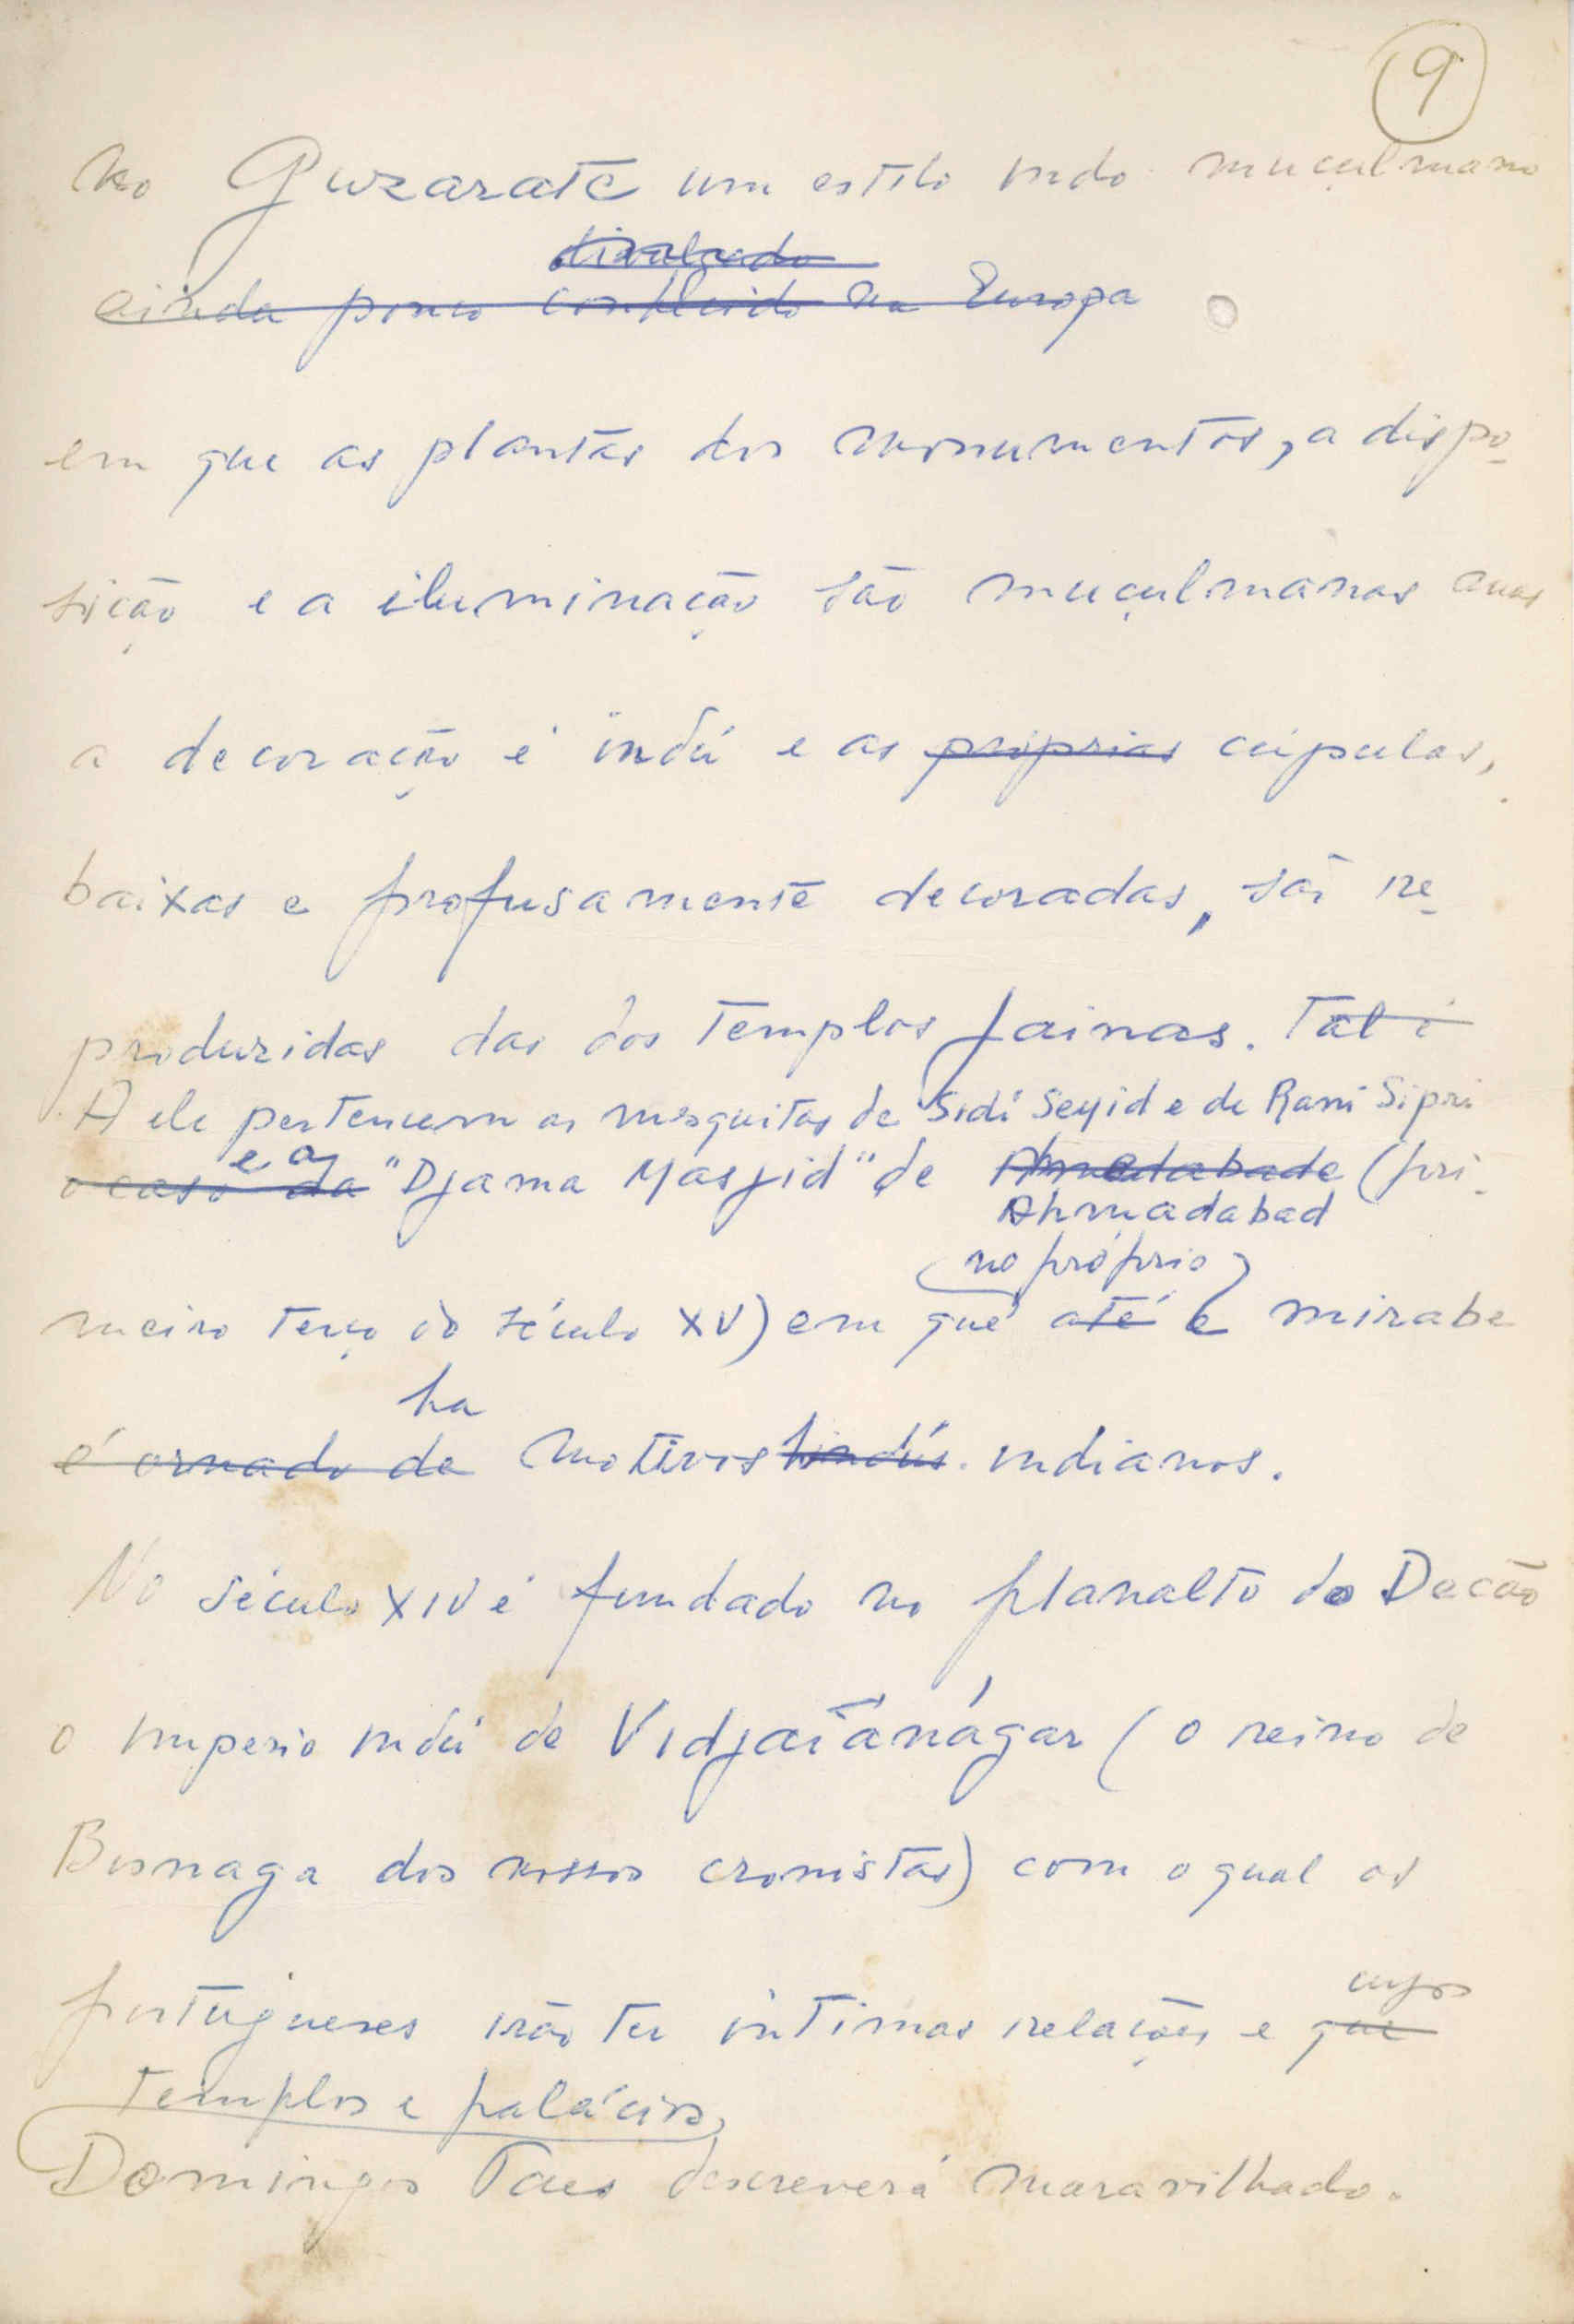 9
no Guzarate um estilo indo muçulmano
divulgado
ainda pouco conhecido na Europa
em que as plantas dos monumentos, a dispo-
sição e a iluminação são muçulmanas mas
a decoração é indú e as próprias cúpulas,
baixas e profusamente decoradas, são re-
produzidas das dos templos jainas. Tal é
A ele pertencem as mesquitas de Sidi Seyid e de Rani Sipri
e a
o caso da "Djama Masjid" de Ahmedabade (pri-
Ahmadabad
no próprio
meiro terço do século XV) em que até o mirabe
ha
é ornado de motivos hindús. indianos.
No século XIV é fundado no planalto do Decão
o imperio indú de Vidjaianágar (o reino de
Bisnaga dos nossos cronistas) com o qual os
cujos
portugueses irão ter íntimas relações e que
templos e palácios,
Domingos Paes descreverá maravilhado.